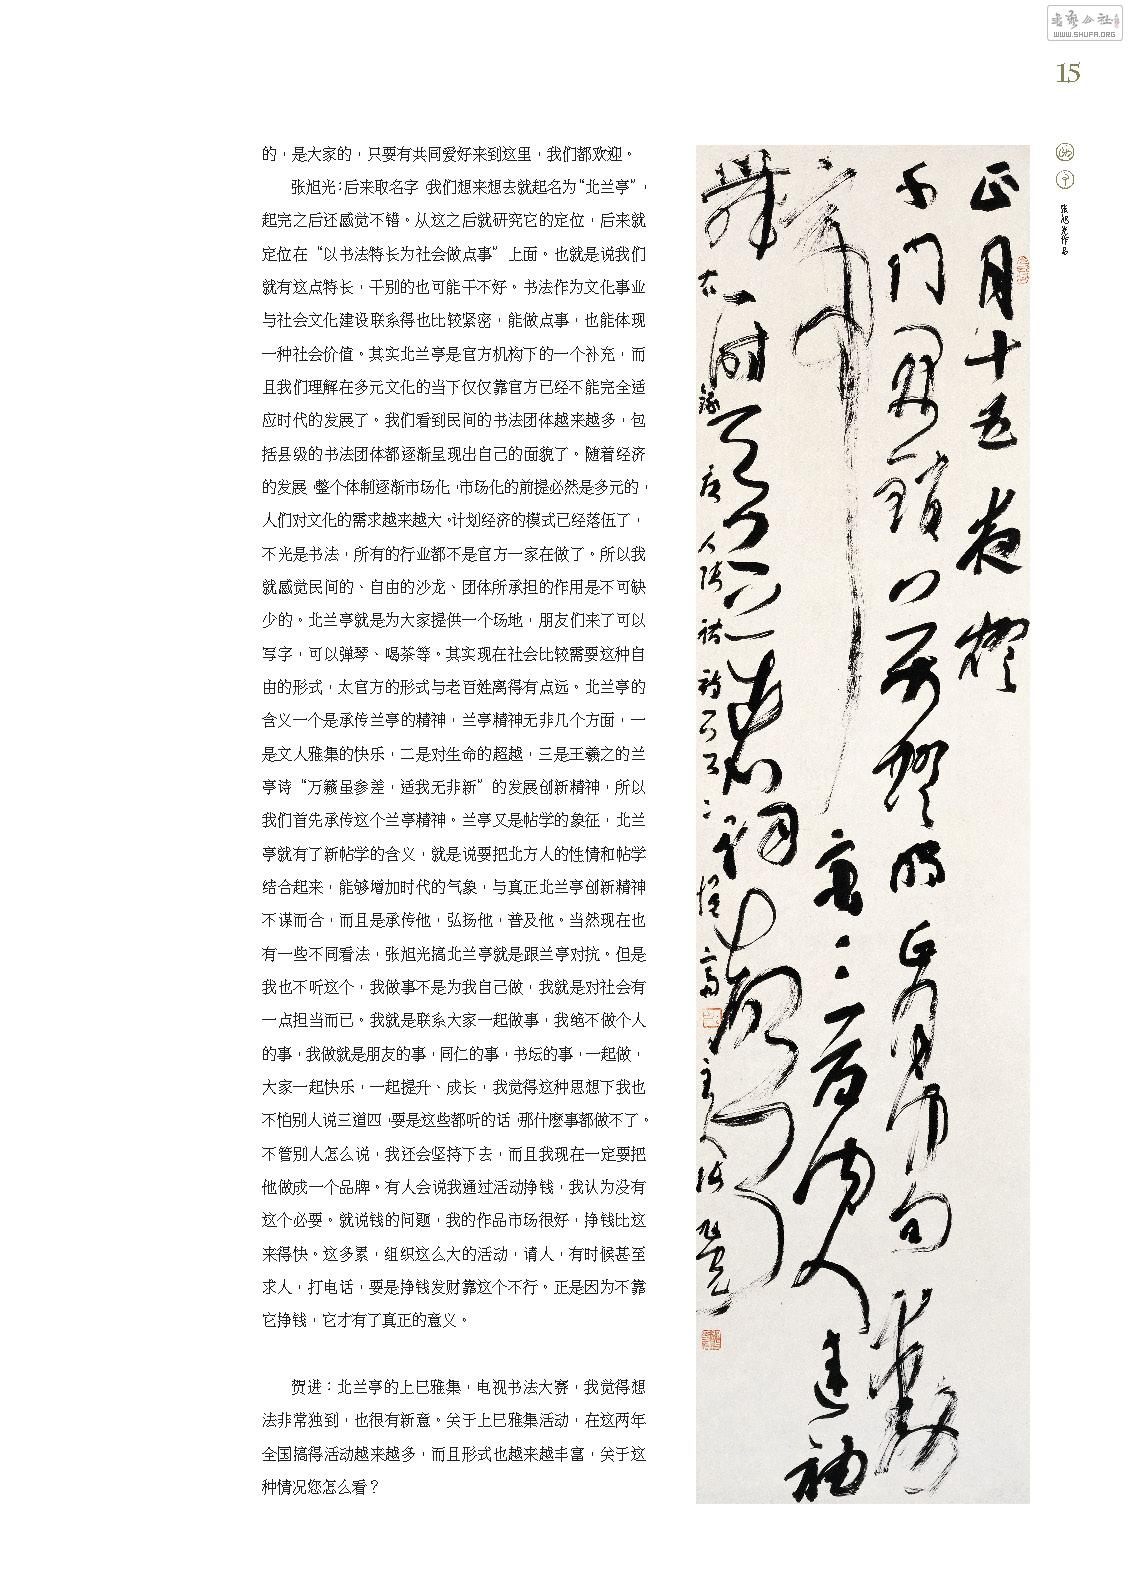 書藝公社
WWW.SHUFA.ORG
15
张旭光作品
的，是大家的，只要有共同爱好来到这里，我们都欢迎。
张旭光：后来取名字，我们想来想去就起名为“北兰亭”，
起完之后还感觉不错。从这之后就研究它的定位，后来就
定位在“以书法特长为社会做点事”上面。也就是说我们
就有这点特长，干别的也可能干不好。书法作为文化事业
与社会文化建设联系得也比较紧密，能做点事，也能体现
一种社会价值。其实北兰亭是官方机构下的一个补充，而
且我们理解在多元文化的当下仅仅靠官方已经不能完全适
应时代的发展了。我们看到民间的书法团体越来越多，包
括县级的书法团体都逐渐呈现出自己的面貌了。随着经济
的发展，整个体制逐渐市场化，市场化的前提必然是多元的，
人们对文化的需求越来越大。计划经济的模式已经落伍了，
不光是书法，所有的行业都不是官方一家在做了。所以我
就感觉民间的、自由的沙龙、团体所承担的作用是不可缺
少的。北兰亭就是为大家提供一个场地，朋友们来了可以
写字，可以弹琴、喝茶等。其实现在社会比较需要这种自
由的形式，太官方的形式与老百姓离得有点远。北兰亭的
含义一个是承传兰亭的精神，兰亭精神无非几个方面，一
是文人雅集的快乐，二是对生命的超越，三是王羲之的兰
亭诗“万籁虽参差，适我无非新”的发展创新精神，所以
我们首先承传这个兰亭精神。兰亭又是帖学的象征，北兰
亭就有了新帖学的含义，就是说要把北方人的性情和帖学
结合起来，能够增加时代的气象，与真正北兰亭创新精神
不谋而合，而且是承传他，弘扬他，普及他。当然现在也
有一些不同看法，张旭光搞北兰亭就是跟兰亭对抗。但是
我也不听这个，我做事不是为我自己做，我就是对社会有
一点担当而已。我就是联系大家一起做事，我绝不做个人
的事，我做就是朋友的事，同仁的事，书坛的事，一起做，
大家一起快乐，一起提升、成长，我觉得这种思想下我也
不怕别人说三道四，要是这些都听的话，那什麽事都做不了。
不管别人怎么说，我还会坚持下去，而且我现在一定要把
他做成一个品牌。有人会说我通过活动挣钱，我认为没有
这个必要。就说钱的问题，我的作品市场很好，挣钱比这
来得快。这多累，组织这么大的活动，请人，有时候甚至
求人，打电话，要是挣钱发财靠这个不行。正是因为不靠
它挣钱，它才有了真正的意义。
贺进：北兰亭的上巳雅集，电视书法大赛，我觉得想
法非常独到，也很有新意。关于上巳雅集活动，在这两年
全国搞得活动越来越多，而且形式也越来越丰富，关于这
种情况您怎么看？
正月十五夜灯
千门开锁万灯明正月中旬动
帝京三百内人连袖
舞一时天上著词声
右录唐人张祜诗